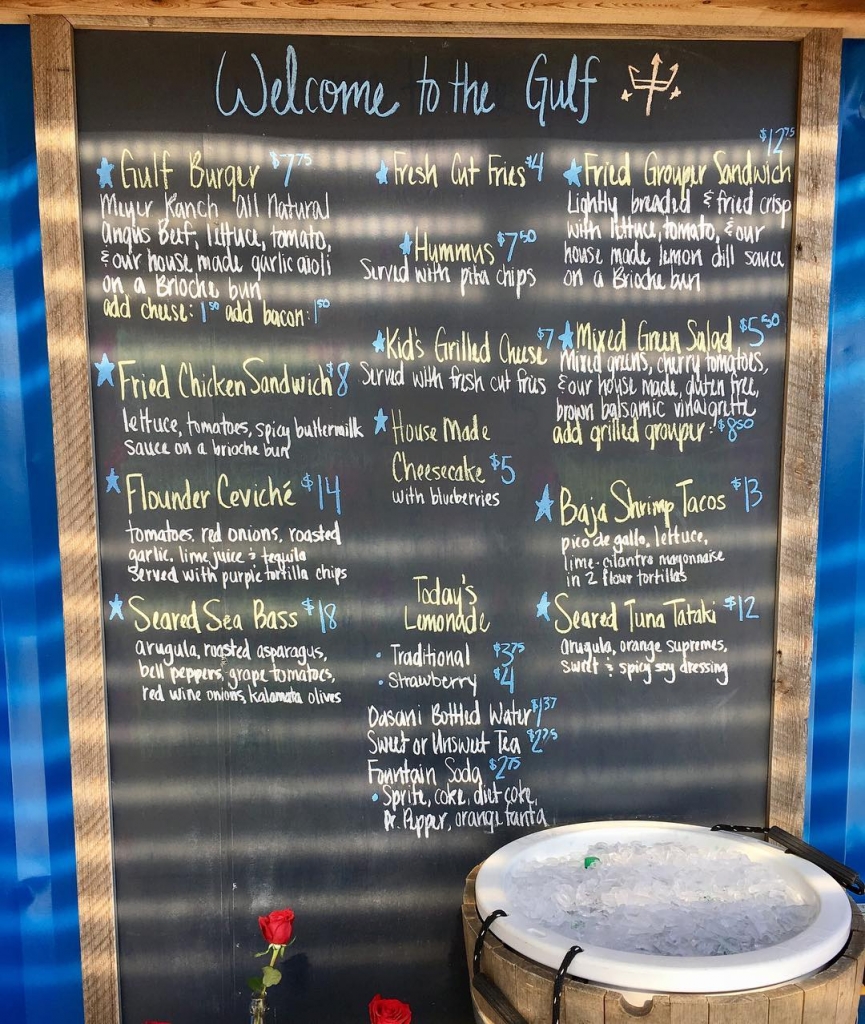 Welcome to the Gulf
Gulf Burger $7.75
Meyer Ranch all Natural
angus Beef, lettuce, tomato,
& our house made garlic aioli
on a Brioche bun
add cheese: 1.50 add bacon: 1.50
Fried Chicken Sandwich $8
lettuce, tomatoes, spicy buttermilk
sauce on a brioche bun
Flounder Ceviché $14
tomatoes, red onions, roasted
garlic, lime juice & tequila
served with purple tortilla chips
Seared Sea Bass $18
arugula, roasted asparagus,
bell peppers, grape tomatoes,
red wine onions, kalamata olives
Fresh Cut Fries $4
Hummus $7.50
Served with pita chips
Kid's Grilled Cheese $7
Served with fresh cut fries
House Made
Cheesecake $5
with blueberries
Today's
Lemonade
• Traditional $3.75
• Strawberry $4
Dasani Bottled Water $1.37
Sweet or Unsweet Tea $2.75
Fountain Soda $2.75
• Sprite, coke, diet coke,
Dr. Pepper, orange fanta
$12.75
Fried Grouper Sandwich
Lightly breaded & fried crisp
with lettuce, tomato, & our
house made lemon dill sauce
on a Brioche bun
Mixed Green Salad $5.50
Mixed greens, cherry tomatoes,
& our house made, gluten free,
brown balsamic vinaigrette
add grilled grouper: $8.50
Baja Shrimp Tacos $13
pico de gallo, lettuce,
lime-cilantro mayonnaise
in 2 flour tortillas
Seared Tuna Tataki $12
arugula, orange supremes,
sweet & spicy soy dressing